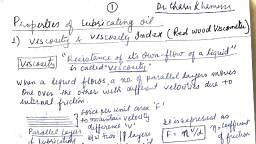 ①
Dr Charu Khemnani
Properties of Lubricating oil
1) Viscosity & Viscosity Index (Red wood Viscometer)
Viscosity "Resistance of its own-flow of a liquid"
is called "Viscosity"
When a liquid flows, a no of parallel layers moves
one over the other with different velocities due to
internal friction
Force per unit area 'F'
to maintain velocity
difference 'v'
Parallel layers
of lubricating
layers
be is expressed as
F = η v/d
η = coefficient
of friction